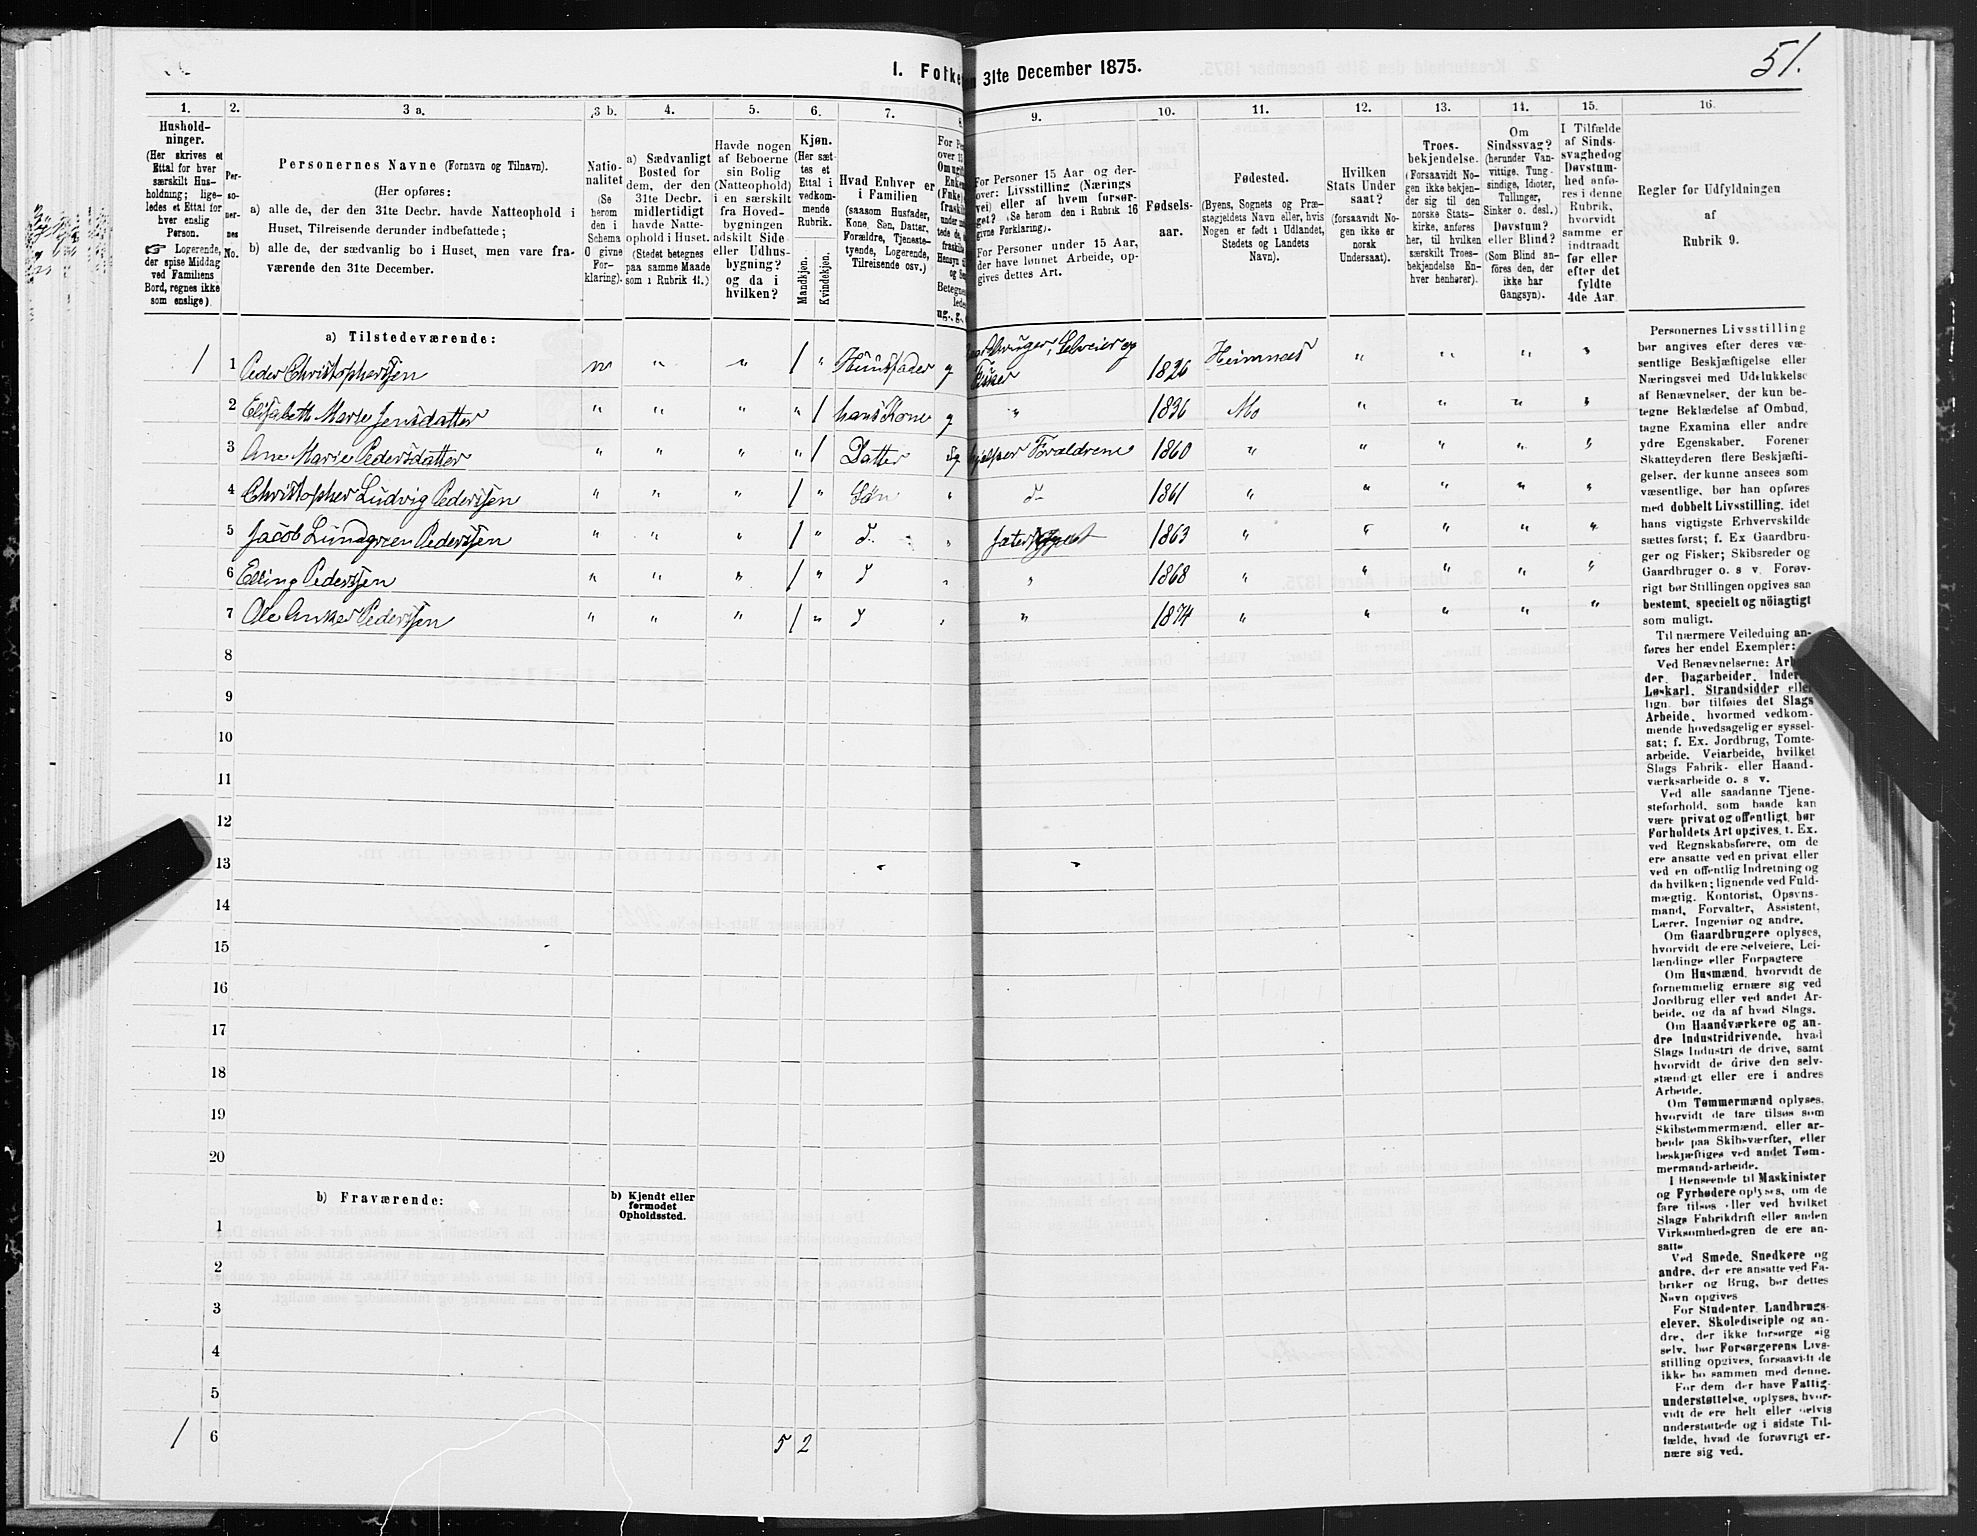 51.
I. Folke en 31te December 1875.
1. 2. 3 a. 3 b. 4. 5. 6. 7. 8. 9. 10. 11. 12. 13. 14. 15. 16.
Hushold-
ninger.
(Her skrives et
Ettal for hver
særskilt Hus-
holdning; lige-
ledes et Ettal for
hver enslig
Person.
☞ Logerende,
der spise Middag
ved Familiens
Bord, regnes ikke
som enslige).
Per-
so-
ner-
nes
No.
Personernes Navne (Fornavn og Tilnavn).
(Her opføres:
a) alle de, der den 31te Decbr. havde Natteophold i
Huset, Tilreisende derunder indbefattede;
b) alle de, der sædvanlig bo i Huset, men vare fra-
værende den 31te December.
Natio-
nalitet
(Se
herom
den i
Schema
O givne
For-
klaring).
a) Sædvanligt
Bosted for
dem, der den
31te Decbr.
midlertidigt
havde Natte-
ophold i Huset.
(Stedet betegnes
paa samme Maade
som i Rubrik 11.)
Havde nogen
af Beboerne
sin Bolig
(Natteophold)
i en særskilt
fra Hoved-
bygningen
adskilt Side
eller Udhus-
bygning?
og da i
hvilken?
Kjøn.
(Her sæt-
tes et
Ettal i
vedkom-
mende
Rubrik.
Mandkjøn.
Kvindekjøn.
Hvad Enhver er
i Familien
(saasom Husfader,
Kone, Søn, Datter,
Forældre, Tjeneste-
tyende, Logerende,
Tilreisende osv.)
For Personer 15 Aar og der-
over: Livsstilling (Nærings
vei) eller af hvem forsør-
get? (Se herom den i Rubrik 16
givne Forklaring).
For Personer under 15 Aar,
der have lønnet Arbeide, op-
gives dettes Art.
Fødsels-
aar.
Fødested.
(Byens, Sognets og Præ-
stegjeldets Navn eller, hvis
Nogen er født i Udlandet,
Stedets og Landets
Navn).
Hvilken
Stats Under
saat?
(forsaavidt No-
gen ikke er
norsk
Undersaat).
Troes-
bekjendelse.
(Forsaavidt No-
gen ikke bekjen-
der sig til den
norske Stats-
kirke, anføres
her, til hvilken
særskilt Troes-
bekjendelse En-
hver henhører).
Om
Sindssvag?
(herunder Van-
vittige, Tung-
sindige, Idioter,
Tullinger,
Sinker o. desl.)
Døvstum?
eller Blind?
(Som Blind an-
føres den, der
ikke har
Gangsyn).
I Tilfælde
af Sinds-
svaghed og
Døvstum-
hed anfø-
res i denne
Rubrik,
hvorvidt
samme er
indtraadt
før eller
efter det
fyldte
4de Aar
Regler for Udfyldningen
af
Rubrik 9.
a) Tilstedeværende:
1 1 Peder Christophersen n " " 1 " Huusfader g Gaardbruger, Selveier og Fisker 1826 Hemnæs " " " "
2 Elisabeth Marie Jensdatter " " " " 1 hans Kone g " 1836 Mo " " " "
3 Ane Marie Pedersdatter " " " " 1 Datter ug hjelper Forældrene 1860 " " " " "
4 Christopher Ludvig Pedersen " " " 1 " Søn " d- 1861 " " " " "
5 Jacob Lundgreen Pedersen " " " 1 " d- " 1863 " " " " "
6 Elling Pedersen " " " 1 " d " " 1868 " " " " "
7 Ole Anker Pedersen " " " 1 " d " " 1874 " " " " "
8
9
10
11
12
13
14
15
16
17
18
19
20
b) Fraværende:
b) Kjendt eller
formodet
Opholdssted.
1
2
3
4
5
1 6 5 2
Personernes Livsstilling
bør angives efter deres væ-
sentlige Beskjæftigelse eller
Næringsvei med Udelukkelse
af Benævnelser, der kun be-
tegne Beklædelse af Ombud,
tagne Examina eller andre
ydre Egenskaber. Forener
Skatteyderen flere Beskjæfti-
gelser, der kunne ansees som
væsentlige, bør han opføres
med dobbelt Livsstilling, idet
hans vigtigste Erhvervskilde
sættes først; f. Ex Gaardbru-
ger og Fisker; Skibsreder og
Gaardbruger o. s v. Forøv-
rigt bør Stillingen opgives saa
bestemt, specielt og nöiagtigt
som muligt.
Til nærmere Veiledning an-
føres her endel Exempler:
Ved Benævnelserne: Arbei
der, Dagarbeider, Inder
Løskarl, Strandsidder eller
lign. bør tilføies det Slags
Arbeide, hvormed vedkom-
mende hovedsagelig er syssel-
sat; f. Ex. Jordbrug, Tomte-
arbeide, Veiarbeide, hvilket
Slags Fabrik- eller Haand-
værksarbeide o. s v.
Ved alle saadanne Tjene-
steforhold, som baade kan
være privat og offentligt, bør
Forholdets Art opgives, t. Ex.
ved Regnskabsførere, om de
ere ansatte ved en privat eller
ved en offentlig Indretning og
da hvilken; lignende ved Fuld-
mægtig, Kontorist, Opsyns-
mand, Forvalter, Assistent,
Lærer, Ingeniør og andre.
Om Gaardbrugere oplyses,
hvorvidt de ere Selveiere, Lei-
lændinge eller Forpagtere
Om Husmænd, hvorvidt de
fornemmelig ernære sig ved
Jordbrug eller ved andet Ar-
beide, og da af hvad Slags.
Om Haandværkere og an-
dre Industridrivende, hvad
Slags Industri de drive, samt
hvorvidt de drive den selv-
stændigt eller ere i andres
Arbeide.
Om Tømmermænd oplyses,
hvorvidt de fare tilsøs som
Skibstømmermænd, eller ar-
beide paa Skibsværfter, eller
beskjæftiges ved andet Tøm-
mermandsarbeide.
I Henseende til Maskinister
og Fyrbødere oplyses, om de
fare tilsøs eller ved hvilket
Slags Fabrikdrift eller anden
Virksomhedsgren de ere an-
satte
Ved Smede, Snedkere og
andre, der ere ansatte ved Fa-
briker og Brug, bør dettes
Navn opgives
For Studenter, Landbrugs-
elever, Skoledisciple og an-
dre, der ikke forsørge sig
selv, bør Forsørgerens Livs-
stilling opgives, forsaavidt de
ikke bo sammen med denne.
For dem, der have Fattig-
understøttelse, oplyses, hvor-
vidt de ere helt eller delvis
understøttede og i sidste Til-
fælde, hvad de forøvrigt er-
nære sig ved.